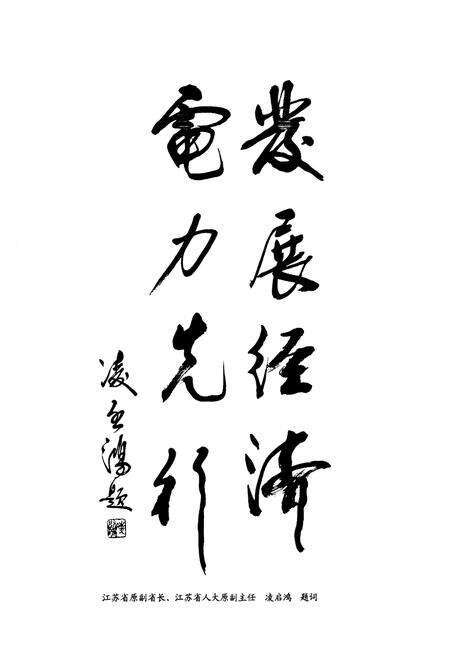 發展经济
電力先行
凌启鸿题
江苏省原副省长、江苏省人大原副主任 凌启鸿 题词